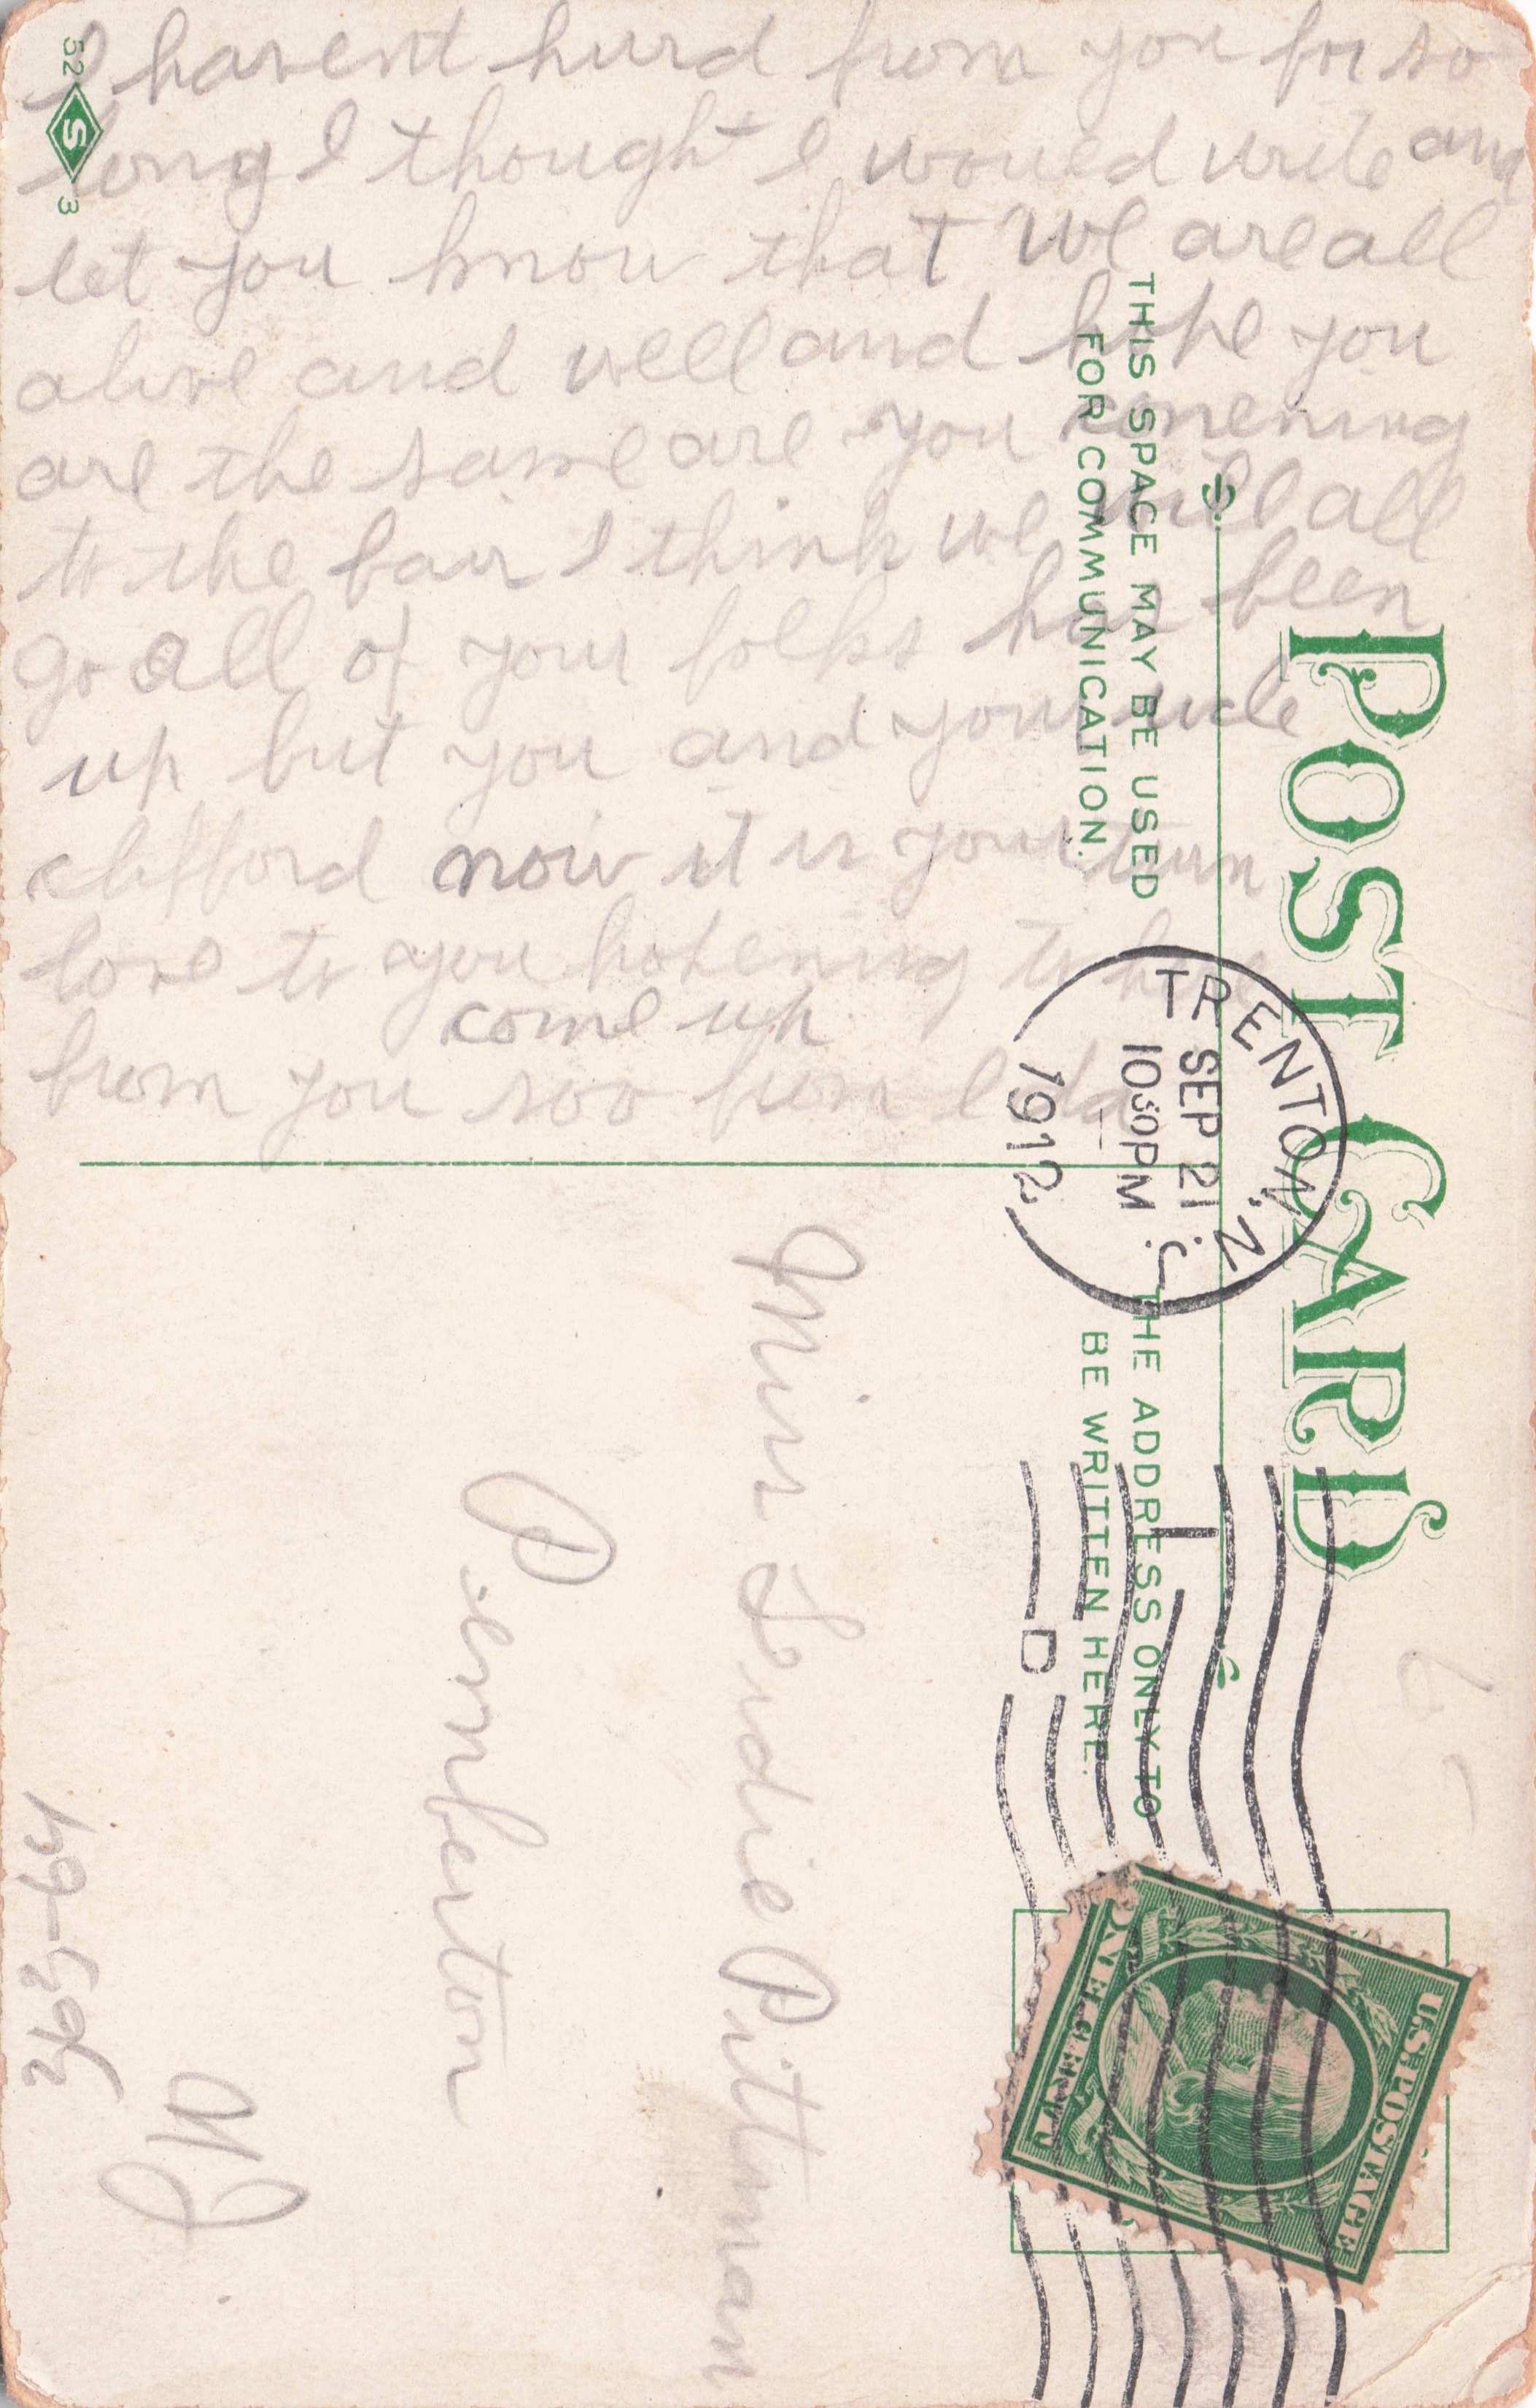 I havent hurd from you for so
long I thought I would write and
let you know that we are all
alive and well and hope you
are the same are you comening
to the fair I think we will all
go all of your folks has been
up but you and your uncle
clifford now it is your turn
love to you hopening to hear
come up
from you soo from Ida
POST CARD
THIS SPACE MAY BE USED
FOR COMMUNICATION.
THE ADDRESS ONLY TO
BE WRITTEN HERE.
TRENTON, N.J.
SEP 21
1030PM
1912
1
D
U.S. POSTAGE
ONE CENT
Miss Sadie Pittman
Pemberton
NJ
363-64
52 S 3